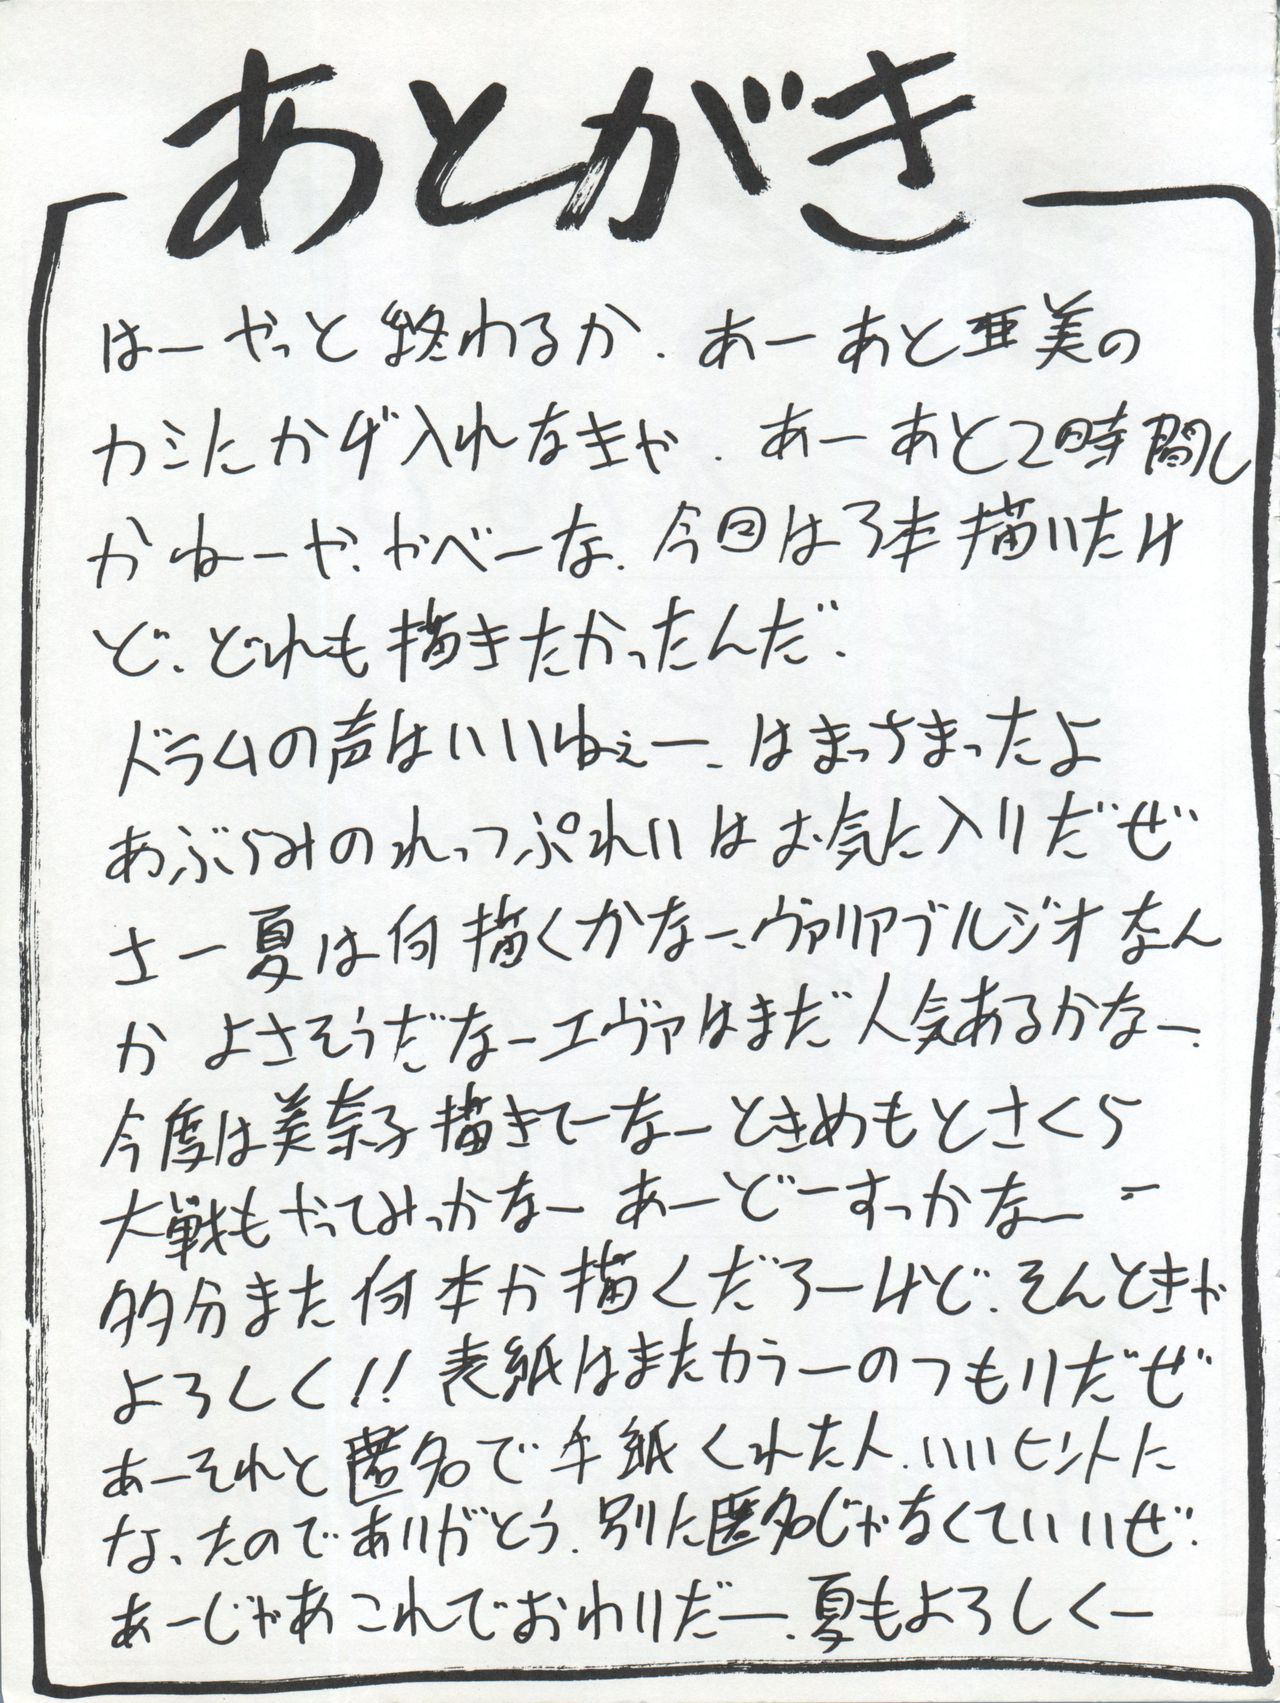 あとがき
はーやっと終わるか、あーあと亜美の
カミにかげ入れなきゃ、あーあと2時間し
かねーや、やべーな、今回は3本描いたけ
ど、どれも描きたかったんだ、
ドラムの声はいいねぇー、はまっさまったよ
あぶらみのれっつぷれいはお気に入りだぜ
さー夏は何描くかなー、ヴァリアブルジオなん
か よさそうだなーエヴァはまだ人気あるかなー、
今度は美奈子描きてーなーときめもとさくら
大戦もやってみっかなー あーどーすっかなー
多分また何本か描くだろーけど、そんときゃ
よろしく!! 表紙はまたカラーのつもりだぜ
あーそれと匿名で手紙くれた人、いいヒントに
なったのでありがとう、別に匿名じゃなくていいぜ、
あーじゃあこれでおわりだー、夏もよろしくー